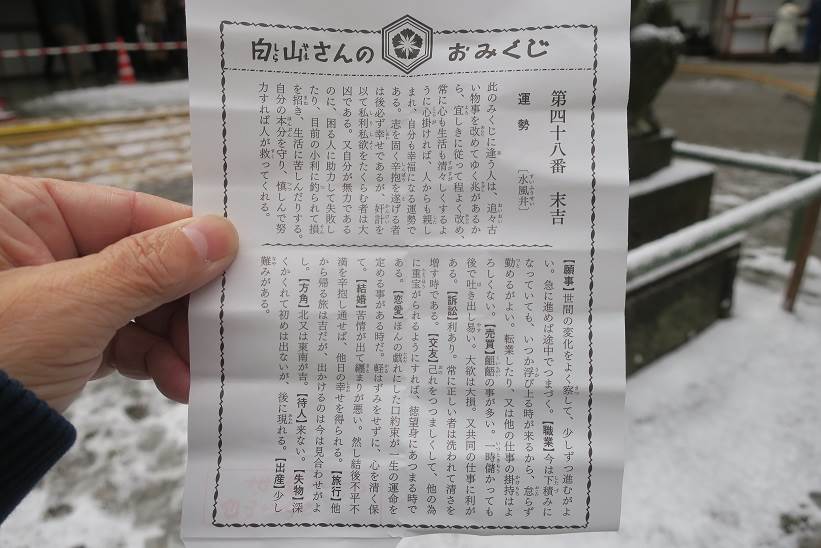 白山さんの おみくじ
第四十八番 末吉
運勢 〔水風井〕
此のみくじに逢う人は、追々古
い物事を改めてゆく兆があるか
ら、宜しきに従って程よく改め、
常に心も生活も清々しくするよ
うに心掛ければ、人からも親し
まれ、自分も幸福になる運勢で
ある。志を固く辛抱を遂げる者
は後必ず幸せであるが、奸計を
以て私利私欲をたくらむ者は大
凶である。又自分が無力である
のに、困る人に助力して失敗し
たり、目前の小利に釣られて損
を招き、生活に苦しんだりする。
自分の本分を守り、慎しんで努
力すれば人が救ってくれる。
【願事】世間の変化をよく察して、少しずつ進むがよ
い。急に進めば途中でつまづく。【職業】今は下積みに
なっていても、いつか浮び上る時が来るから、怠らず
勤めるがよい。転業したり、又は他の仕事の掛持はよ
ろしくない。【売買】齟齬の事が多い。一時儲かっても
後で吐き出し易い。大欲は大損。又共同の仕事に利が
ある。【訴訟】利あり。常に正しい者は洗われて清さを
増す時である。【交友】己れをつつましくして、他の為
に重宝がられるようにすれば、徳望身にあつまる時で
ある。【恋愛】ほんの戯れにした口約束が一生の運命を
定める事がある時だ。軽はずみをせずに、心を清く保
て。【結婚】苦情が出て纏まりが悪い。然し結後不平不
満を辛抱し通せば、他日の幸せを得られる。【旅行】他
から帰る旅は吉だが、出かけるのは今は見合わせがよ
し。【方角】北又は東南が吉。【待人】来ない。【失物】深
くかくれて初めは出ないが、後に現れる。【出産】少し
難みがある。